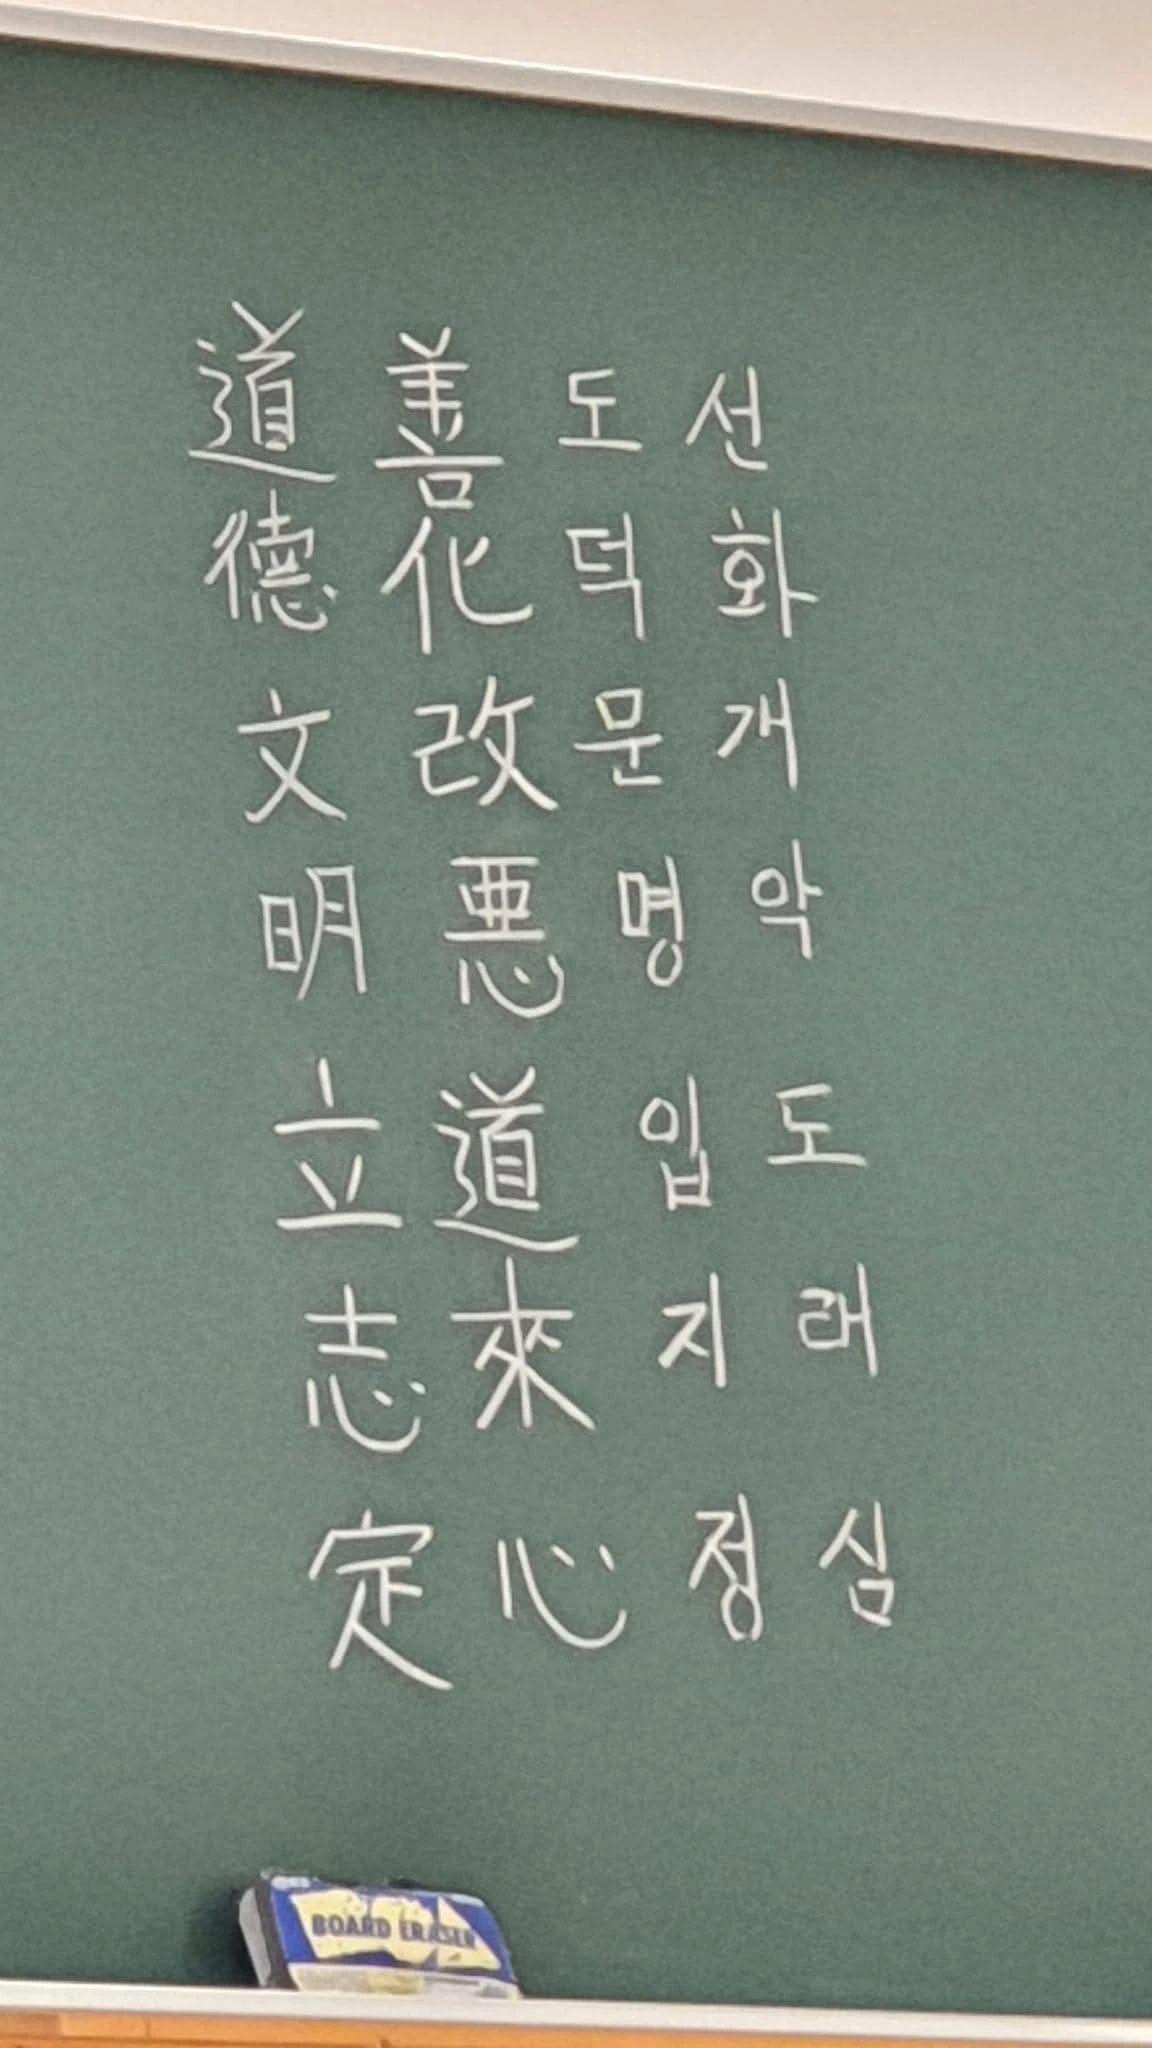 道 善 도 선
德 化 덕 화
文 改 문 개
明 悪 명 악
立 道 입 도
志 來 지 래
定 心 정 심
BOARD ERASER